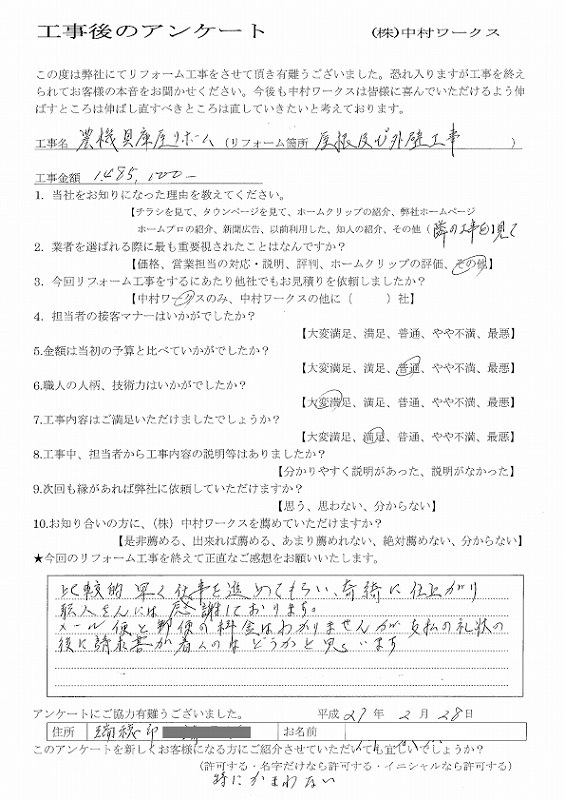 工事後のアンケート (株)中村ワークス
この度は弊社にてリフォーム工事をさせて頂き有難うございました。恐れ入りますが工事を終え
られてお客様の本音をお聞かせください。今後も中村ワークスは皆様に喜んでいただけるよう伸
ばすところは伸ばし直すべきところは直していきたいと考えております。
工事名 農機具庫屋リホーム (リフォーム箇所 屋根及び外壁工事 )
工事金額 1.485,100-
1. 当社をお知りになった理由を教えてください。
【チラシを見て、タウンページを見て、ホームクリップの紹介、弊社ホームページ
ホームプロの紹介、新聞広告、以前利用した、知人の紹介、その他(隣の工事を見て
2. 業者を選ばれる際に最も重要視されたことはなんですか?
【価格、営業担当の対応・説明、評判、ホームクリップの評価、その他】
3. 今回リフォーム工事をするにあたり他社でもお見積りを依頼しましたか?
【中村ワークスのみ、中村ワークスの他に( )社】
4. 担当者の接客マナーはいかがでしたか?
【大変満足、満足、普通、やや不満、最悪】
5.金額は当初の予算と比べていかがでしたか?
【大変満足、満足、普通、やや不満、最悪】
6.職人の人柄、技術力はいかがでしたか?
【大変満足、満足、普通、やや不満、最悪】
7.工事内容はご満足いただけましたでしょうか?
【大変満足、満足、普通、やや不満、最悪】
8.工事中、担当者から工事内容の説明等はありましたか?
【分かりやすく説明があった、説明がなかった】
9.次回も縁があれば弊社に依頼していただけますか?
【思う、思わない、分からない】
10.お知り合いの方に、(株)中村ワークスを薦めていただけますか?
【是非薦める、出来れば薦める、あまり薦めれない、絶対薦めない、分からない】
★今回のリフォーム工事を終えて正直なご感想をお願いいたします。
比較的早く仕事を進めてもらい、奇綺に仕上がり
職人さんには感謝しております。
メール便と郵便の料金はわかりませんが支払の礼状の
後に請求書が着くのはどうかと思います
アンケートにご協力有難うございました。 平成27年2月28日
住所 瑞穂市 お名前
このアンケートを新しくお客様になる方にご紹介させていただいても宜しいでしょうか?
(許可する・名字だけなら許可する・イニシャルなら許可する)
特にかまわない